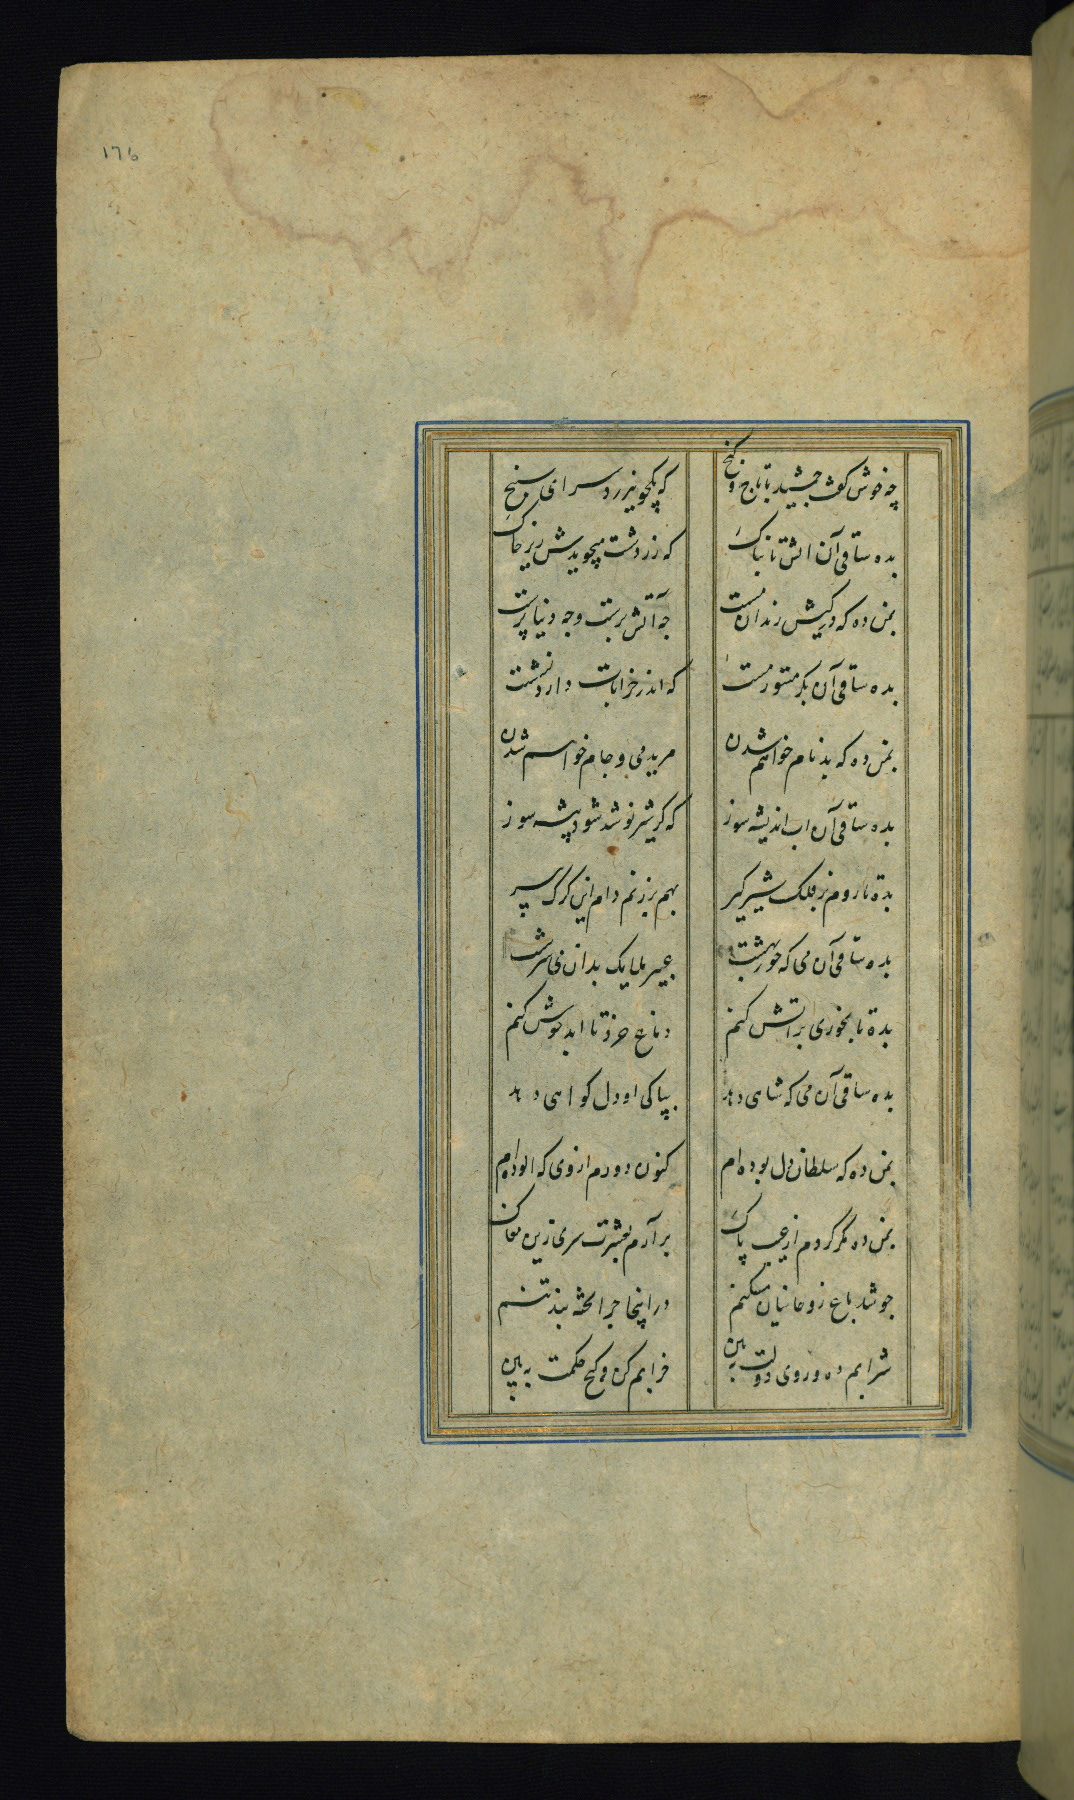 ١٧٦
چه خوش گفت جمشید با تاج و گنج
که یکجو نیرزد سرای سپنج
بده ساقی آن اتش تابناک
که زردشت میجویدش زیر خاک
بمن ده که در کیش رندان مست
چه آتش پرست و چه دنیا پرست
بده ساقی آن بکر مستور مست
که اندر خرابات دارد نشست
بمن ده که بدنام خواهم شدن
مرید می و جام خواهم شدن
بده ساقی آن اب اندیشه سوز
که گر شیر نوشد شود بیشه سوز
بده تا روم بر فلک شیر گیر
بهم بر زنم دام این گرگ پیر
بده ساقی آن می که حور بهشت
عبیر ملایک بدان می سرشت
بده تا بخوری بر اتش کنم
دماغ خرد تا ابد خوش کنم
بده ساقی آن می که شاهی دهد
بپاکی او دل کواهی دهد
بمن ده که سلطان دل بوده ام
کنون دورم از وی که الوده ام
بمن ده مگر گردم از عیب پاک
بر آرم بعشرت سری زین مغاک
چو شد باغ روحانیان مسکنم
در اینجا چرا تخته بند تنم
شرابم ده و روی دولت ببین
خرابم کن و گنج حکمت ببین